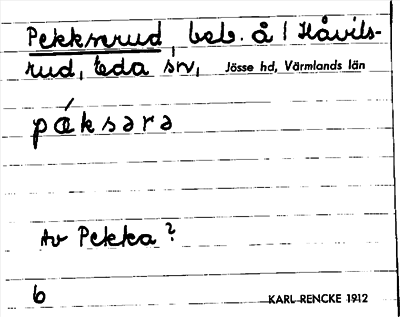 Pekkserud, beb. å / Håvils-
rud, Eda sn, Jösse hd, Värmlands län
pǽksərə
Av Pekka?
6 KARL RENCKE 1912